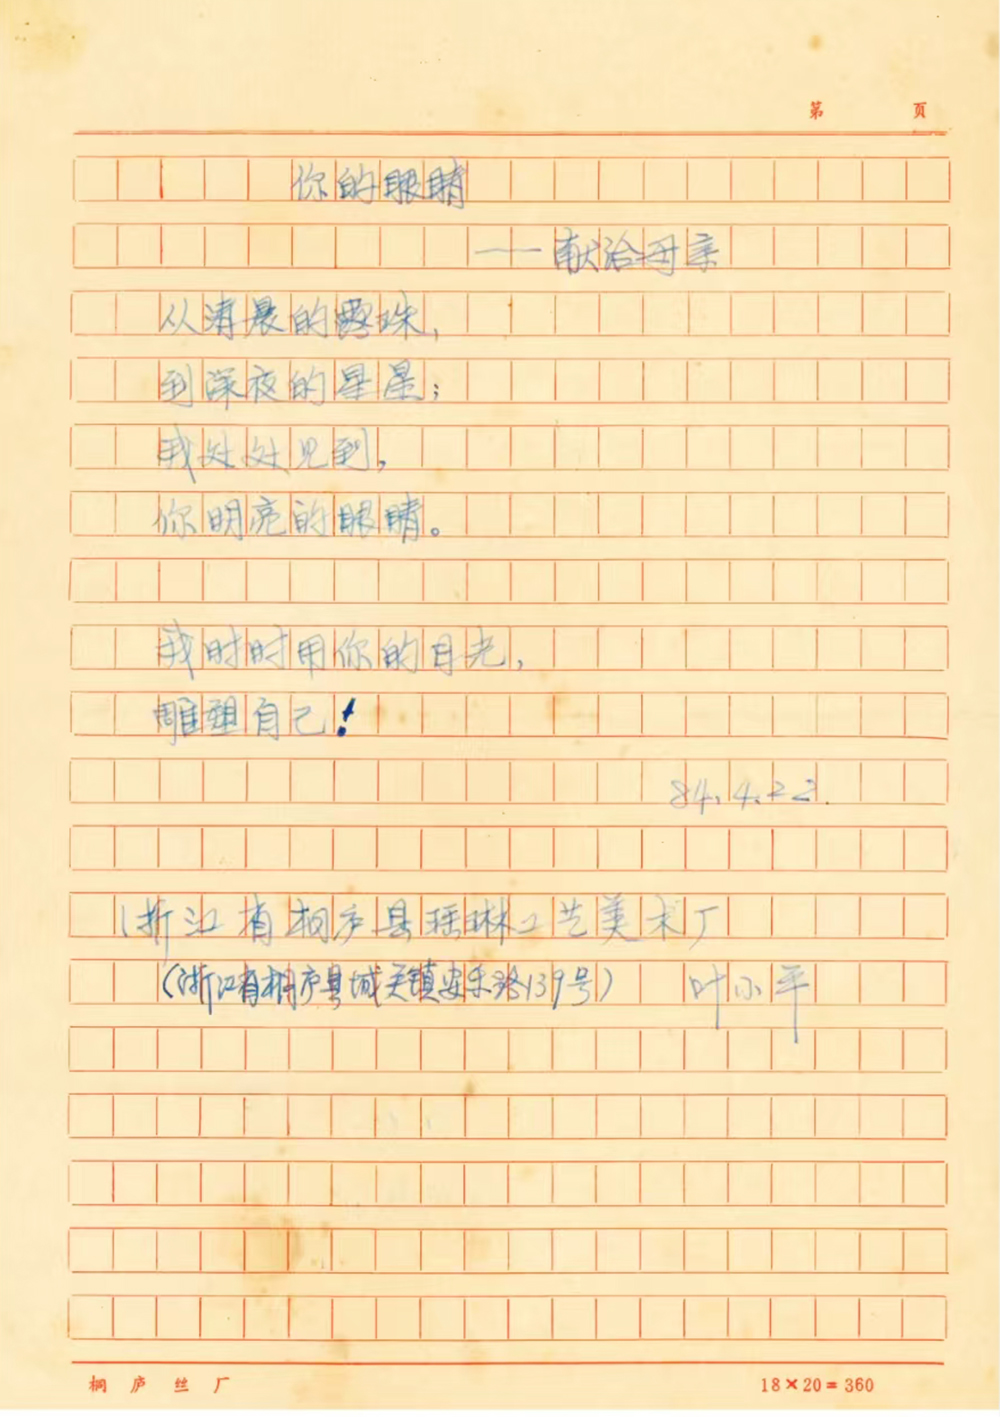 第 页
你的眼睛
——献给母亲
从清晨的露珠，
到深夜的星星；
我处处见到，
你明亮的眼睛。
我时时用你的目光，
雕塑自己！
84.4.22.
浙江省桐庐县瑶琳工艺美术厂
（浙江省桐庐县城关镇安乐路139号） 叶小平
桐庐丝厂 18×20=360